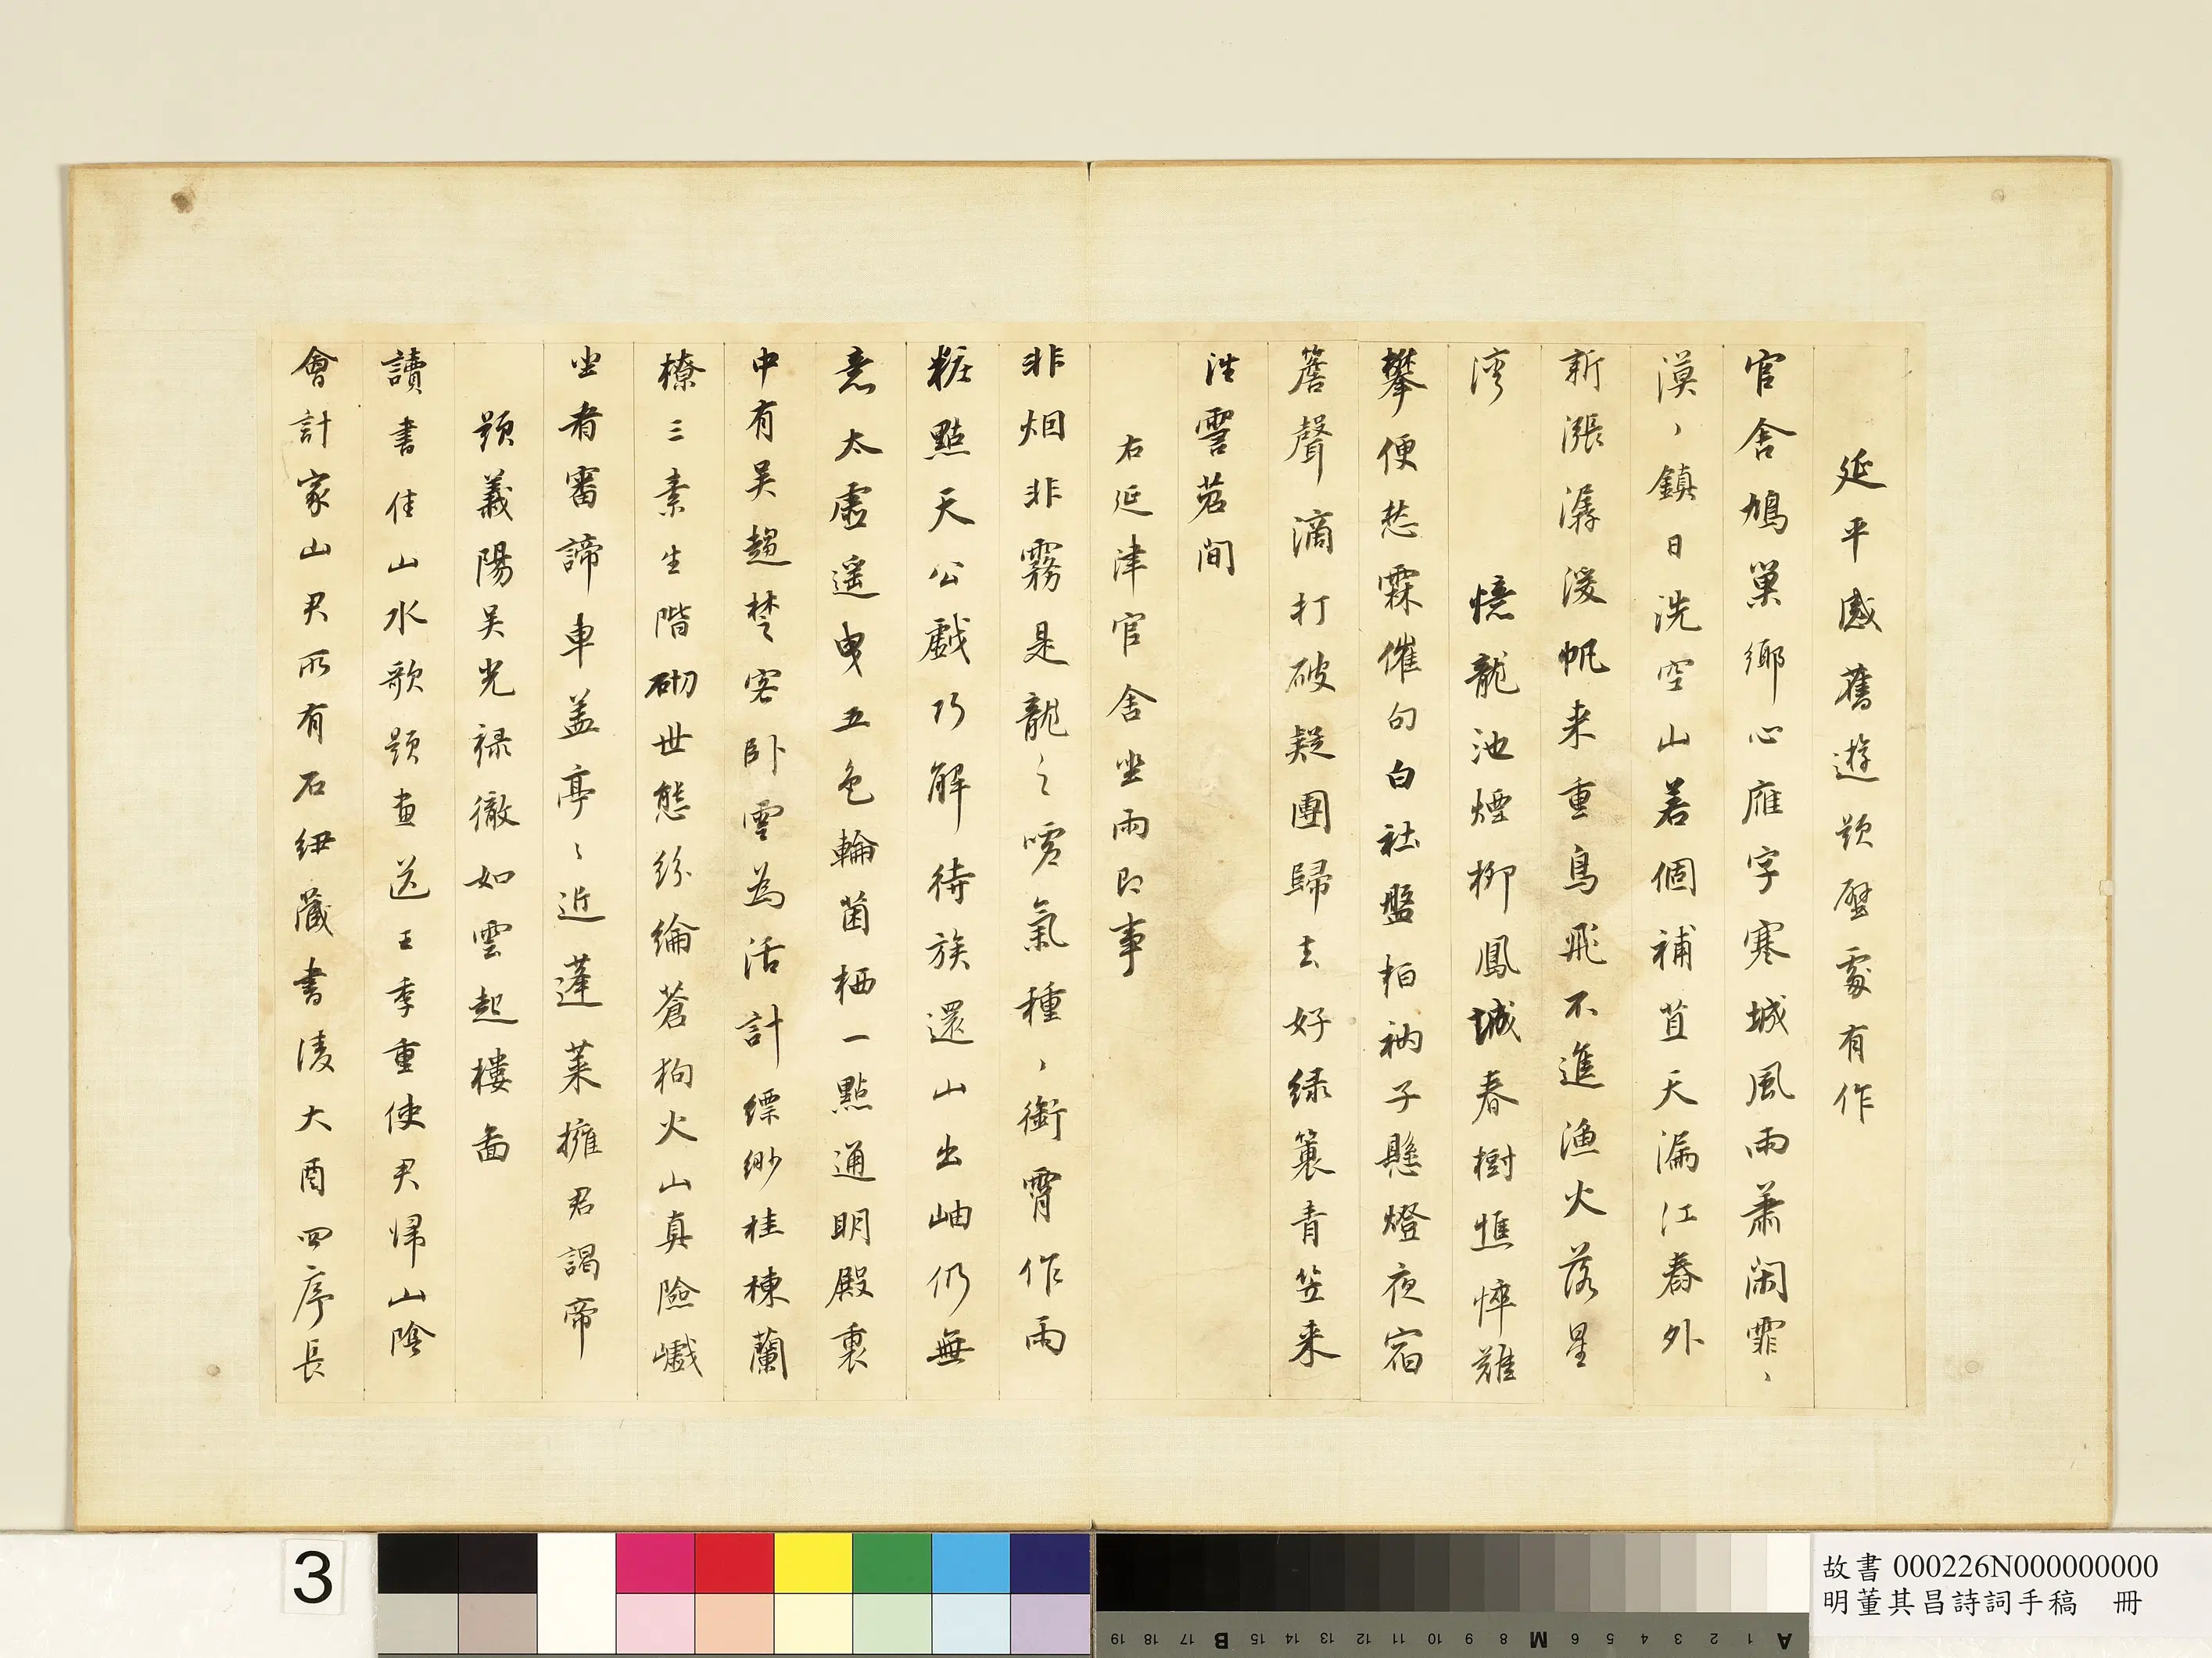 延平感舊遊題壁處有作
官舍鳩巢鄉心雁字寒城風雨蕭閑霏〻
漠〻鎮日洗空山若個補苴天漏江春外
新漲潺湲帆来重鳥飛不進漁火落星
湾　憶龍池煙柳鳳城春樹憔悴難
攀便愁霖催句白社盤桓衲子懸燈夜宿
簷聲滴打破疑團歸去好綠蓑青笠来
往霅苕間
右延津官舍坐雨即事
非烟非霧是龍之噓氣種〻衝霄作雨
粧點天公戲巧解待族還山出岫仍無
意太虛遥曳五色輪菌栖一點通明殿裏
中有吴趨楚客卧雲為活計縹緲桂棟蘭
橑三素生階砌世態紛綸蒼狗火山真險巇
坐者審諦車盖亭〻近蓬萊擁君謁帝
題義陽吴光禄徹如雲起樓圖
讀書佳山水歌題畫送王季重使君歸山陰
會計家山君所有石紐藏書淩大酉四序長
3
故書 000226N000000000
明董其昌詩詞手稿　冊
A 1 2 3 4 5 6 M 8 9 10 11 12 13 14 15 B 17 18 19